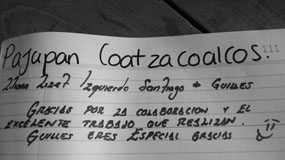 Pajapan Coatzacoalcos.
111
Lizet Izquierdo Santiago * Guilles
Gracias por la colaboracion y el
excelente trabajo que realizan.
Guilles eres especial gracias